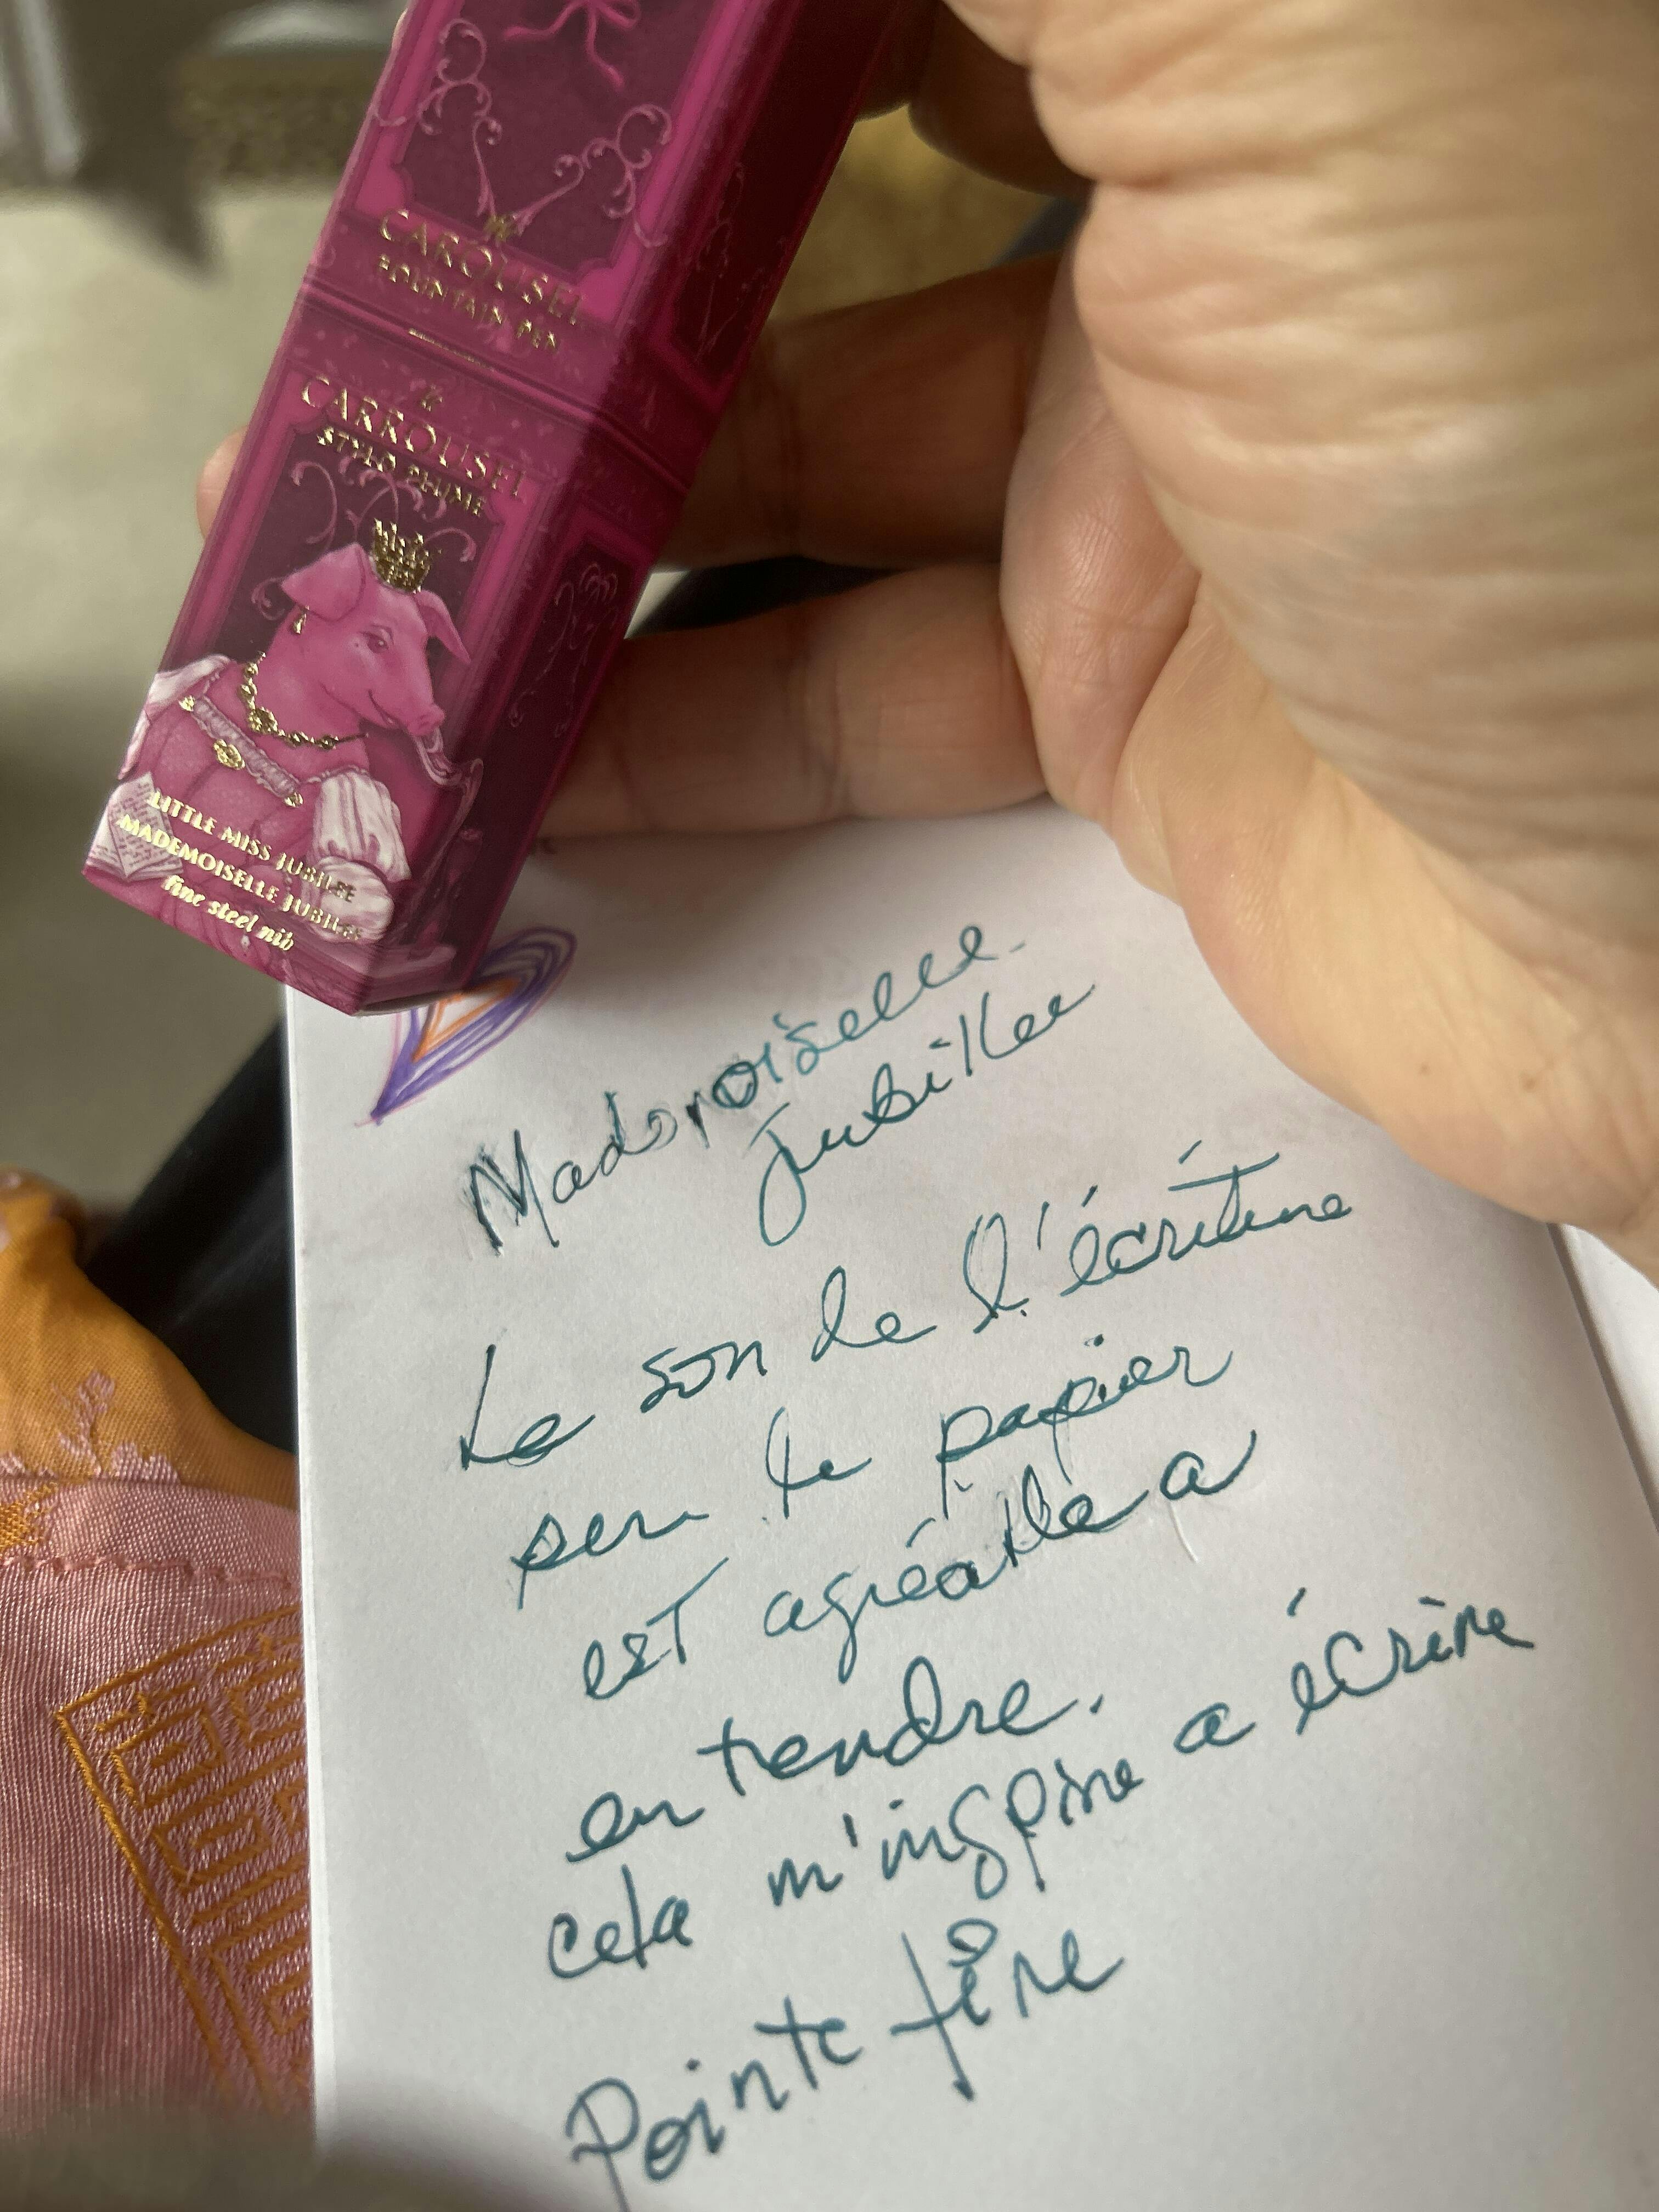 CAROUSEL
FOUNTAIN PEN
CARROUSEL
STYLO PLUME
LITTLE MISS JUBILEE
MADEMOISELLE JUBILEE
fine steel nib
Mademoiselle
Jubillee
Le son de l'écriture
sur le papier
est agréable a
entendre.
cela m'inspire a écrire
Pointe fine